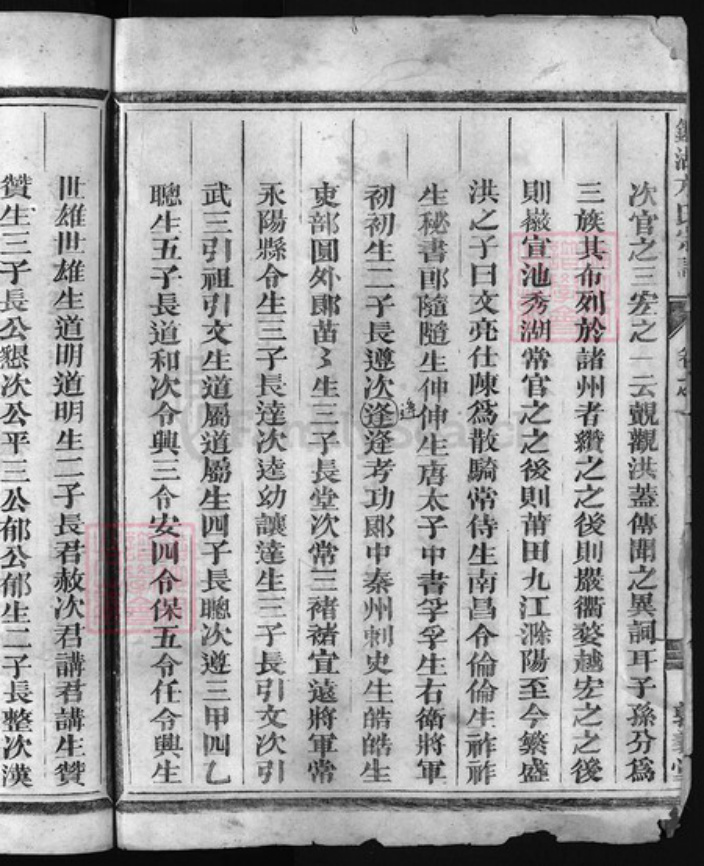 方氏宗譜
次官之三宏之一云覬觀洪蓋傳聞之異詞耳子孫分爲
三族其布列於諸州者纘之之後則嚴衢婺越宏之之後
則徽宣池秀湖常官之之後則莆田九江滁陽至今繁盛
洪之子曰文亮仕陳爲散騎常侍生南昌令倫倫生祚祚
生秘書郎隨隨生伸伸生唐太子中書孚孚生右衛將軍
初初生二子長遵次逢逢考功郎中秦州刺史生皓皓生
逢
吏部員外郎苗〻生三子長堂次常三褚褚宣遠將軍常
永陽縣令生三子長達次逵幼讓達生三子長引文次引
武三引祖引文生道屬道屬生四子長聰次遵三甲四乙
聰生五子長道和次令興三令安四令保五令任令興生
世雄世雄生道明道明生二子長君赦次君講君講生贊
贊生三子長公懇次公平三公郁公郁生二子長整次漢
FamilySearch